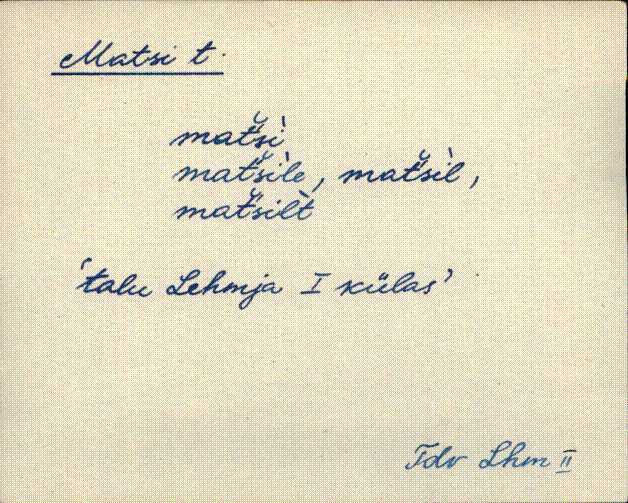 Matsi t.
mat̆'sì
mat̆'sìle, mat̆'sìl,
mat̆'silt̀
'talu Lehmja I külas'
Jdv Lhm II